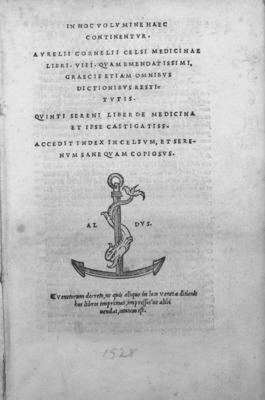 IN HOC VOLVMINE HAEC
CONTINENTVR.
AVRELII CORNELII CELSI MEDICINAE
LIBRI. VIII. QVAM EMENDATISSIMI,
GRAECIS ETIAM OMNIBVS
DICTIONIBVS RESTI-
TVTIS.
QVINTI SERENI LIBER DE MEDICINA
ET IPSE CASTIGATISS.
ACCEDIT INDEX IN CELSVM, ET SERE-
NVM SANE QVAM COPIOSVS.
AL DVS.
Venetorum decreto, ne quis aliquo in loco venetæ ditionis
hos libros imprimat, impressos'ue alibi
uendat, cautum est.
1528